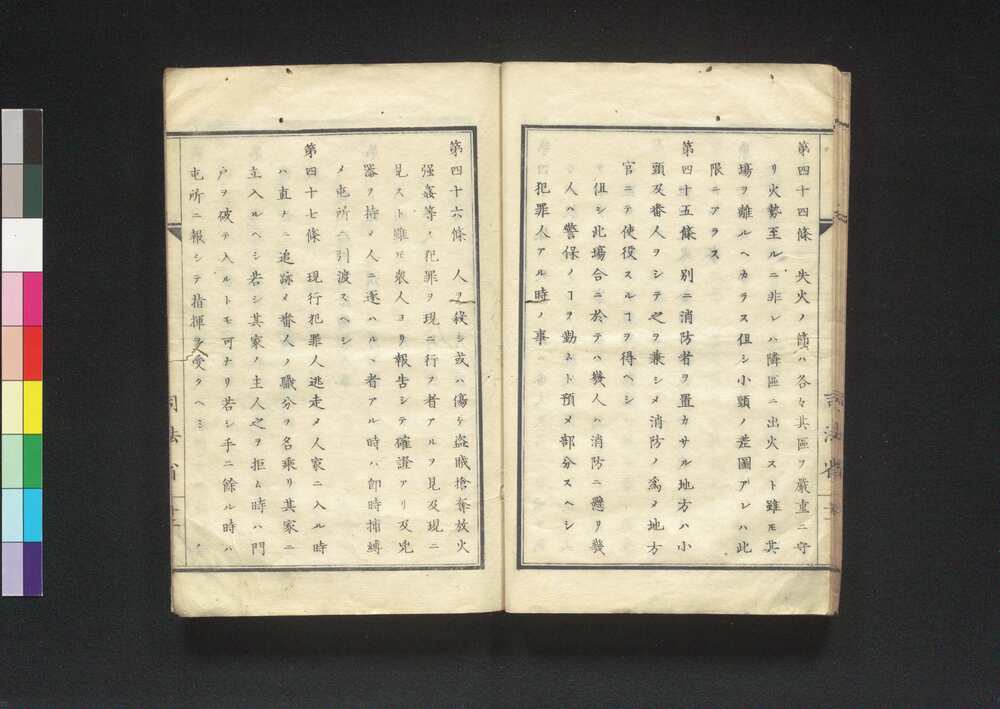 第四十四條　失火ノ節ハ各々其區ヲ嚴重ニ守
リ火勢至ルニ非レハ隣區ニ出火スト雖モ其
場ヲ離ルヘカラス但シ小頭ノ差圖アレハ此
限ニアラス
第四十五條　別ニ消防者ヲ置カサル地方ハ小
頭及番人ヲシテ之ヲ兼シメ消防ノ爲メ地方
官ニテ使役スルヿヲ得ヘシ
但シ此場合ニ於テハ幾人ハ消防ニ懸リ幾
人ハ警保ノヿヲ勤ムト預メ部分スヘシ
犯罪人アル時ノ事
第四十六條　人ヲ殺シ或ハ傷ケ盜賊搶奪放火
强姦等ノ犯罪ヲ現ニ行フ者アルヲ見及現ニ
見スト雖モ衆人ヨリ報告シテ確證アリ及兇
器ヲ持メ人ニ逐ハルヽ者アル時ハ卽時捕縛
メ屯所ニ引渡スヘシ
第四十七條　現行犯罪人逃走メ人家ニ入ル時
ハ直ナニ追跡メ番人ノ職分ヲ名乘リ其家ニ
立入ルヘシ若シ其家ノ主人之ヲ拒ム時ハ門
戸ヲ破テ入ルトモ可ナリ若シ手ニ餘ル時ハ
屯所ニ報シテ指揮ヲ受クヘシ
司法省